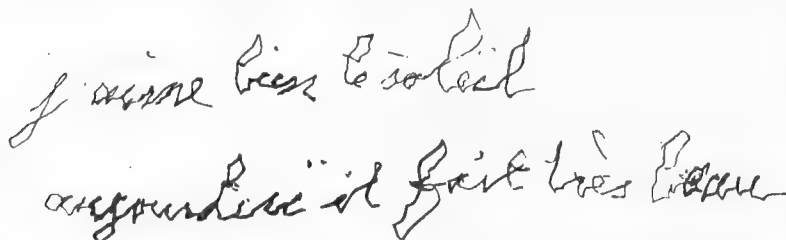 j'aime bien le soleil
aujourdhui il fait très beau